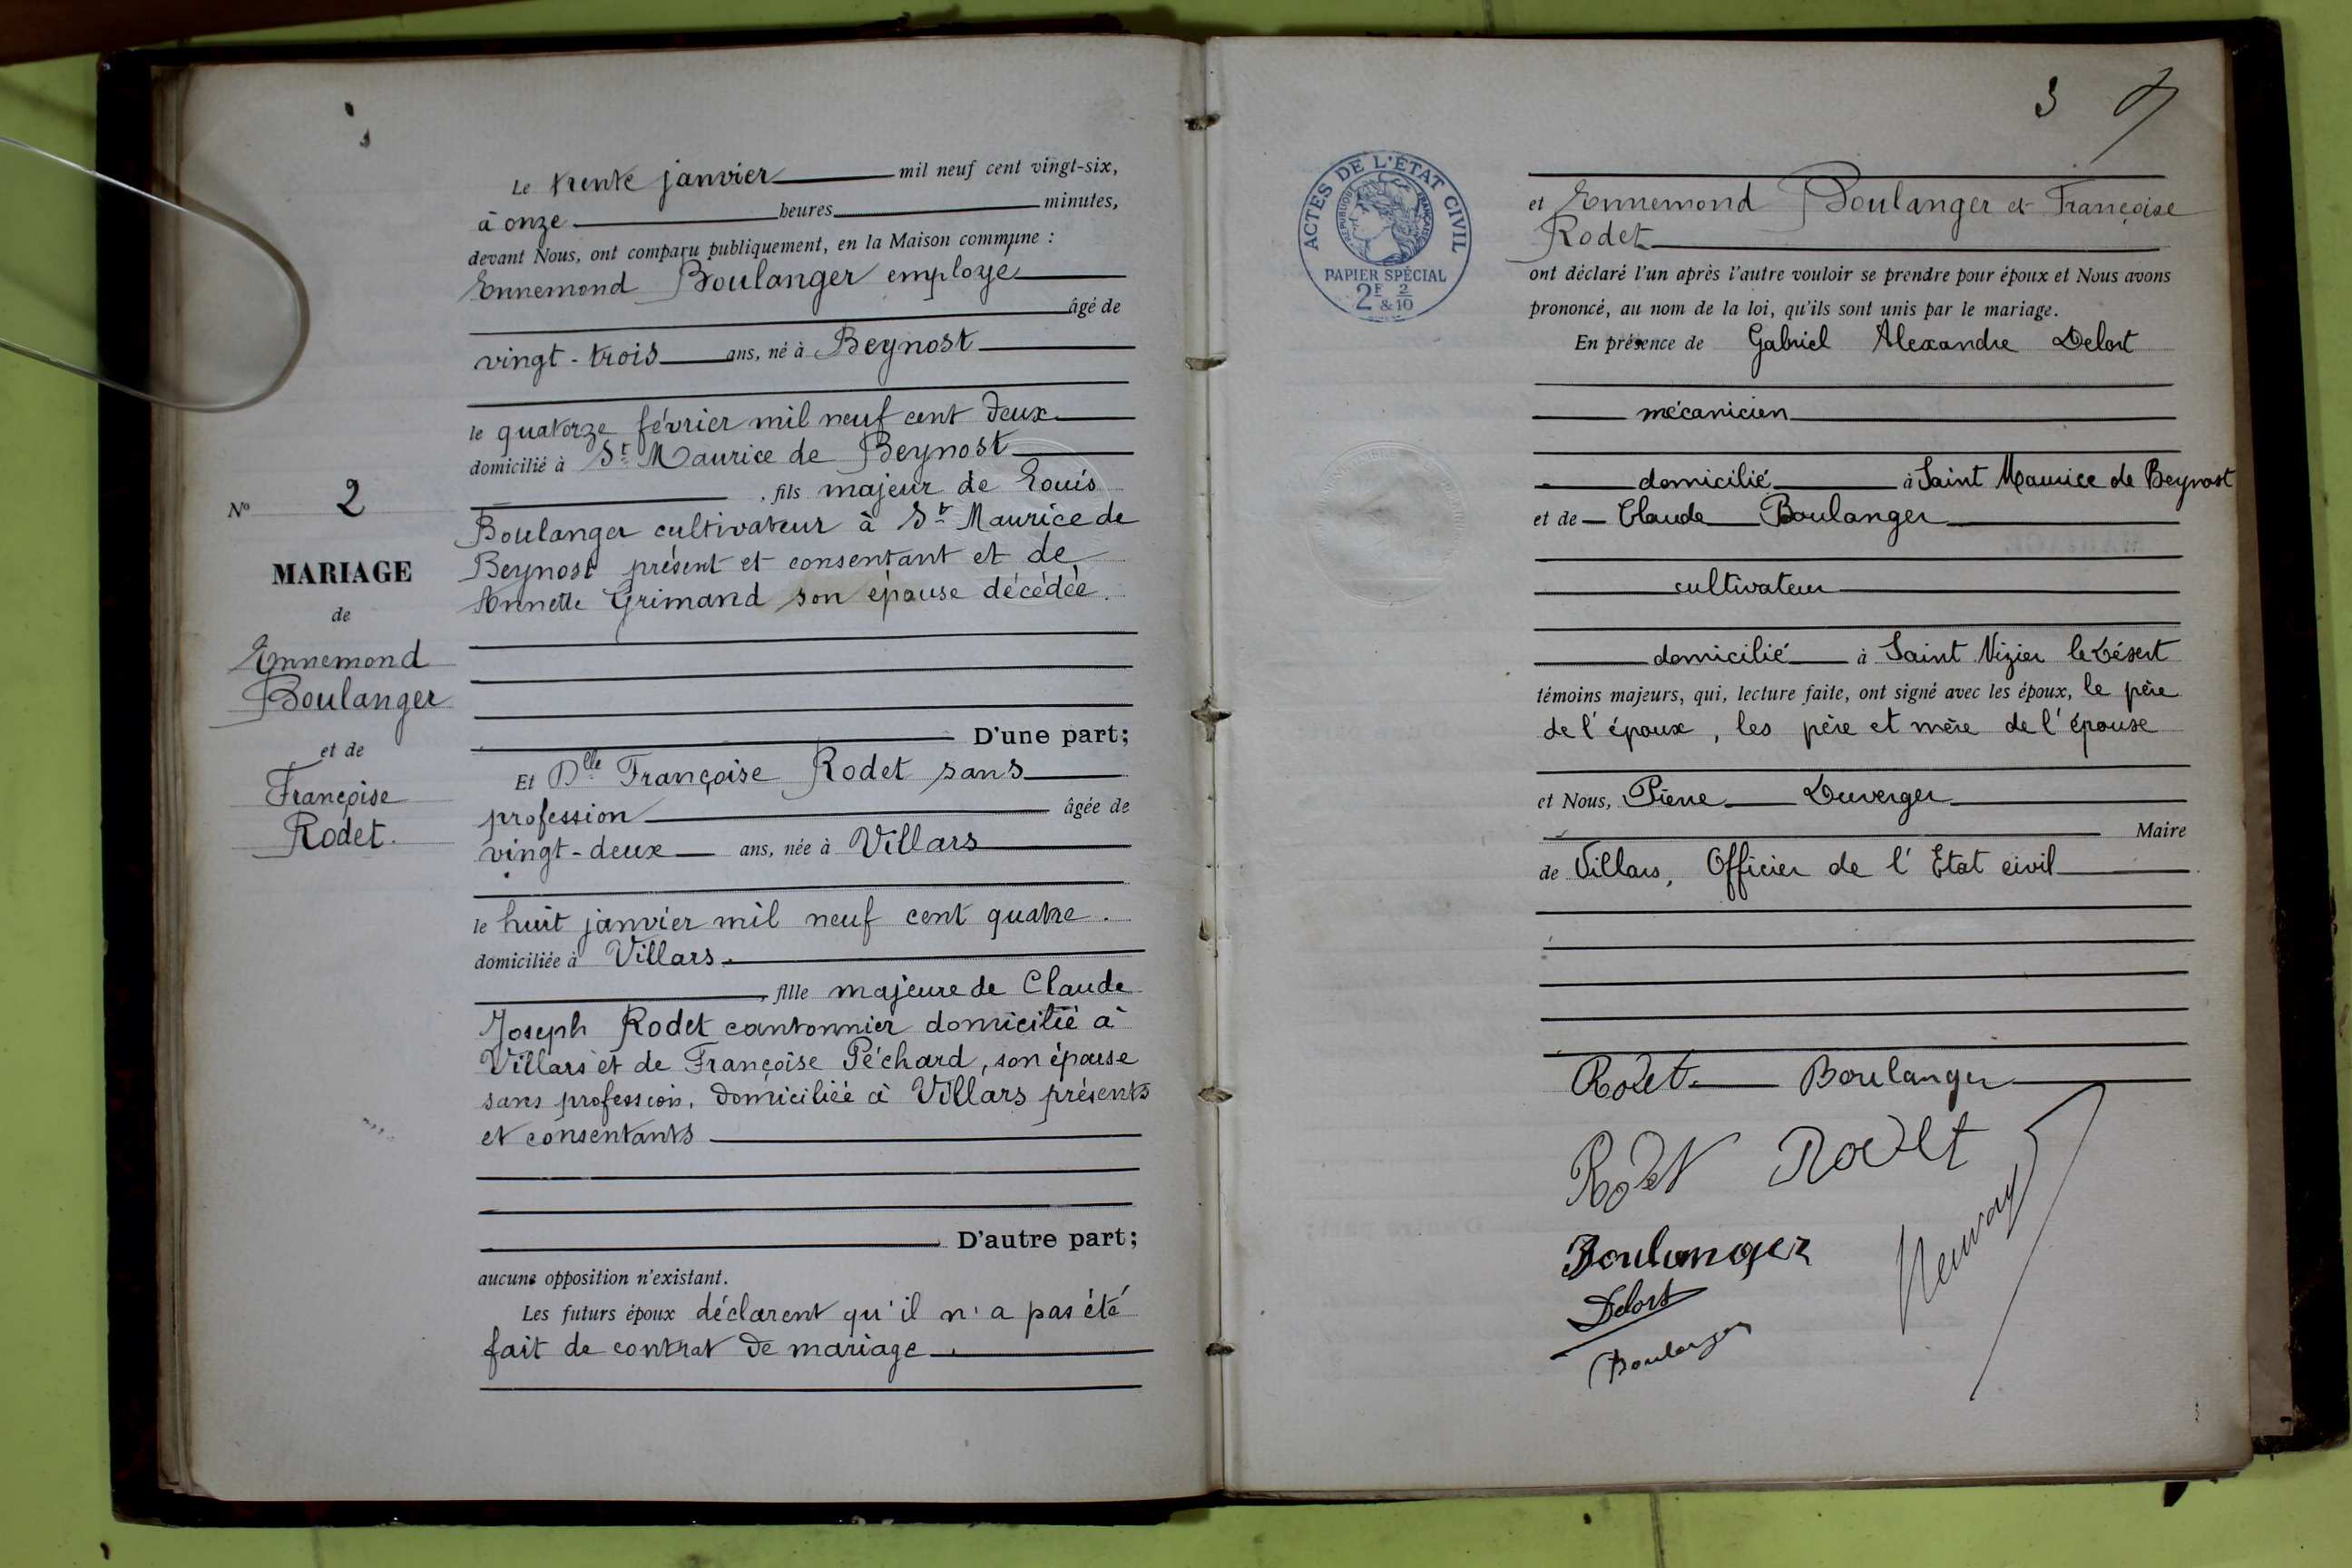 Le trente janvier mil neuf cent vingt-six,
à onze heures minutes,
devant Nous, ont comparu publiquement, en la Maison commune :
Ennemond Boulanger employé
âgé de
vingt-trois ans, né à Beynost
le quatorze février mil neuf cent deux
domicilié à St Maurice de Beynost
, fils majeur de Louis
Boulanger cultivateur à St Maurice de
Beynost présent et consentant et de
Annette Grimand son épouse décédée.
D'une part;
Et Dlle Françoise Rodet sans
profession âgée de
vingt-deux ans, née à Villars
le huit janvier mil neuf cent quatre.
domiciliée à Villars.
, fille majeure de Claude
Joseph Rodet cantonnier domicilié à
Villars et de Françoise Péchard, son épouse
sans profession, domiciliée à Villars présents
et consentants
D'autre part;
aucune opposition n'existant.
Les futurs époux déclarent qu'il n'a pas été
fait de contrat de mariage.
No 2
MARIAGE
de
Ennemond
Boulanger
et de
Françoise
Rodet.
3
ACTES DE L'ÉTAT CIVIL
RÉPUBLIQUE FRANÇAISE
PAPIER SPÉCIAL
2F & 2/10
et Ennemond Boulanger et Françoise
Rodet
ont déclaré l'un après l'autre vouloir se prendre pour époux et Nous avons
prononcé, au nom de la loi, qu'ils sont unis par le mariage.
En présence de Gabriel Alexandre Delort
mécanicien
domicilié à Saint Maurice de Beynost
et de Claude Boulanger
cultivateur
domicilié à Saint Nizier le Désert
témoins majeurs, qui, lecture faite, ont signé avec les époux, le père
de l'époux, les père et mère de l'épouse
et Nous, Pierre Duverger
Maire
de Villars, Officier de l'Etat civil
Rodet Boulanger
Rodet Rodet
Boulanger
Delort
Boulanger